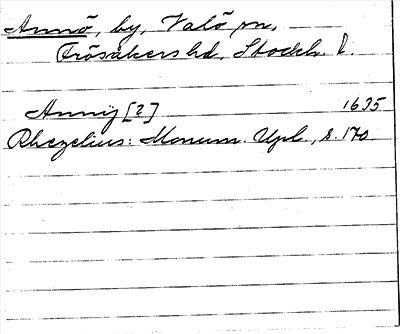 Annö, by, Valö sn,
Frösåkers hd, Stockh. l.
Annij [?] 1635
Rhezelius: Monum. Upl., s. 170